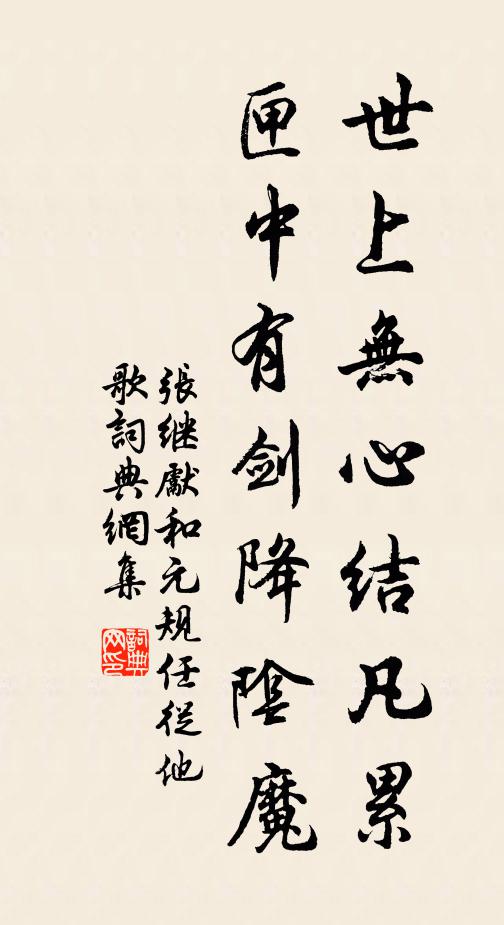 世上無心結凡累
匣中有剑降陰魔
張继歔和元規任從他
歌詞典網集
詞典网印